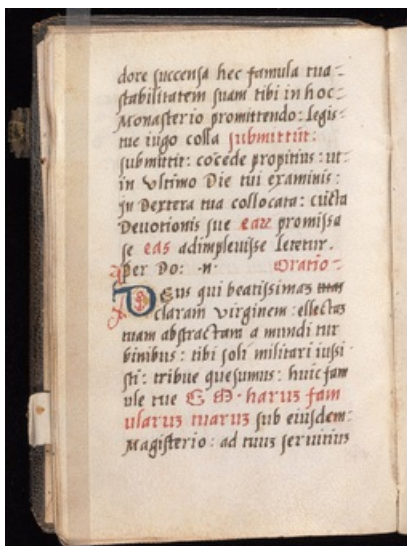 dore succensa hec famula tua
stabilitatem suam tibi in hoc
Monasterio promittendo: legis
tue iugo colla submittũt:
submittit: cõcede propitius: ut
in ultimo Die tui examinis:
in Dextera tua collocata: cũcta
Devotionis sue earum promissa
se eas adimplevisse letetur.
Per Do: ·n· Oratio
Deus qui beatissimam tuam
claram virginem: ellectam
tuam abstractam a mundi tur
binibus: tibi soli militari iussi
sti: tribue quesumus: huic fam
ule tue E M· harum fam
ularum tuarum sub eiusdem:
Magisterio: ad tuum servitium